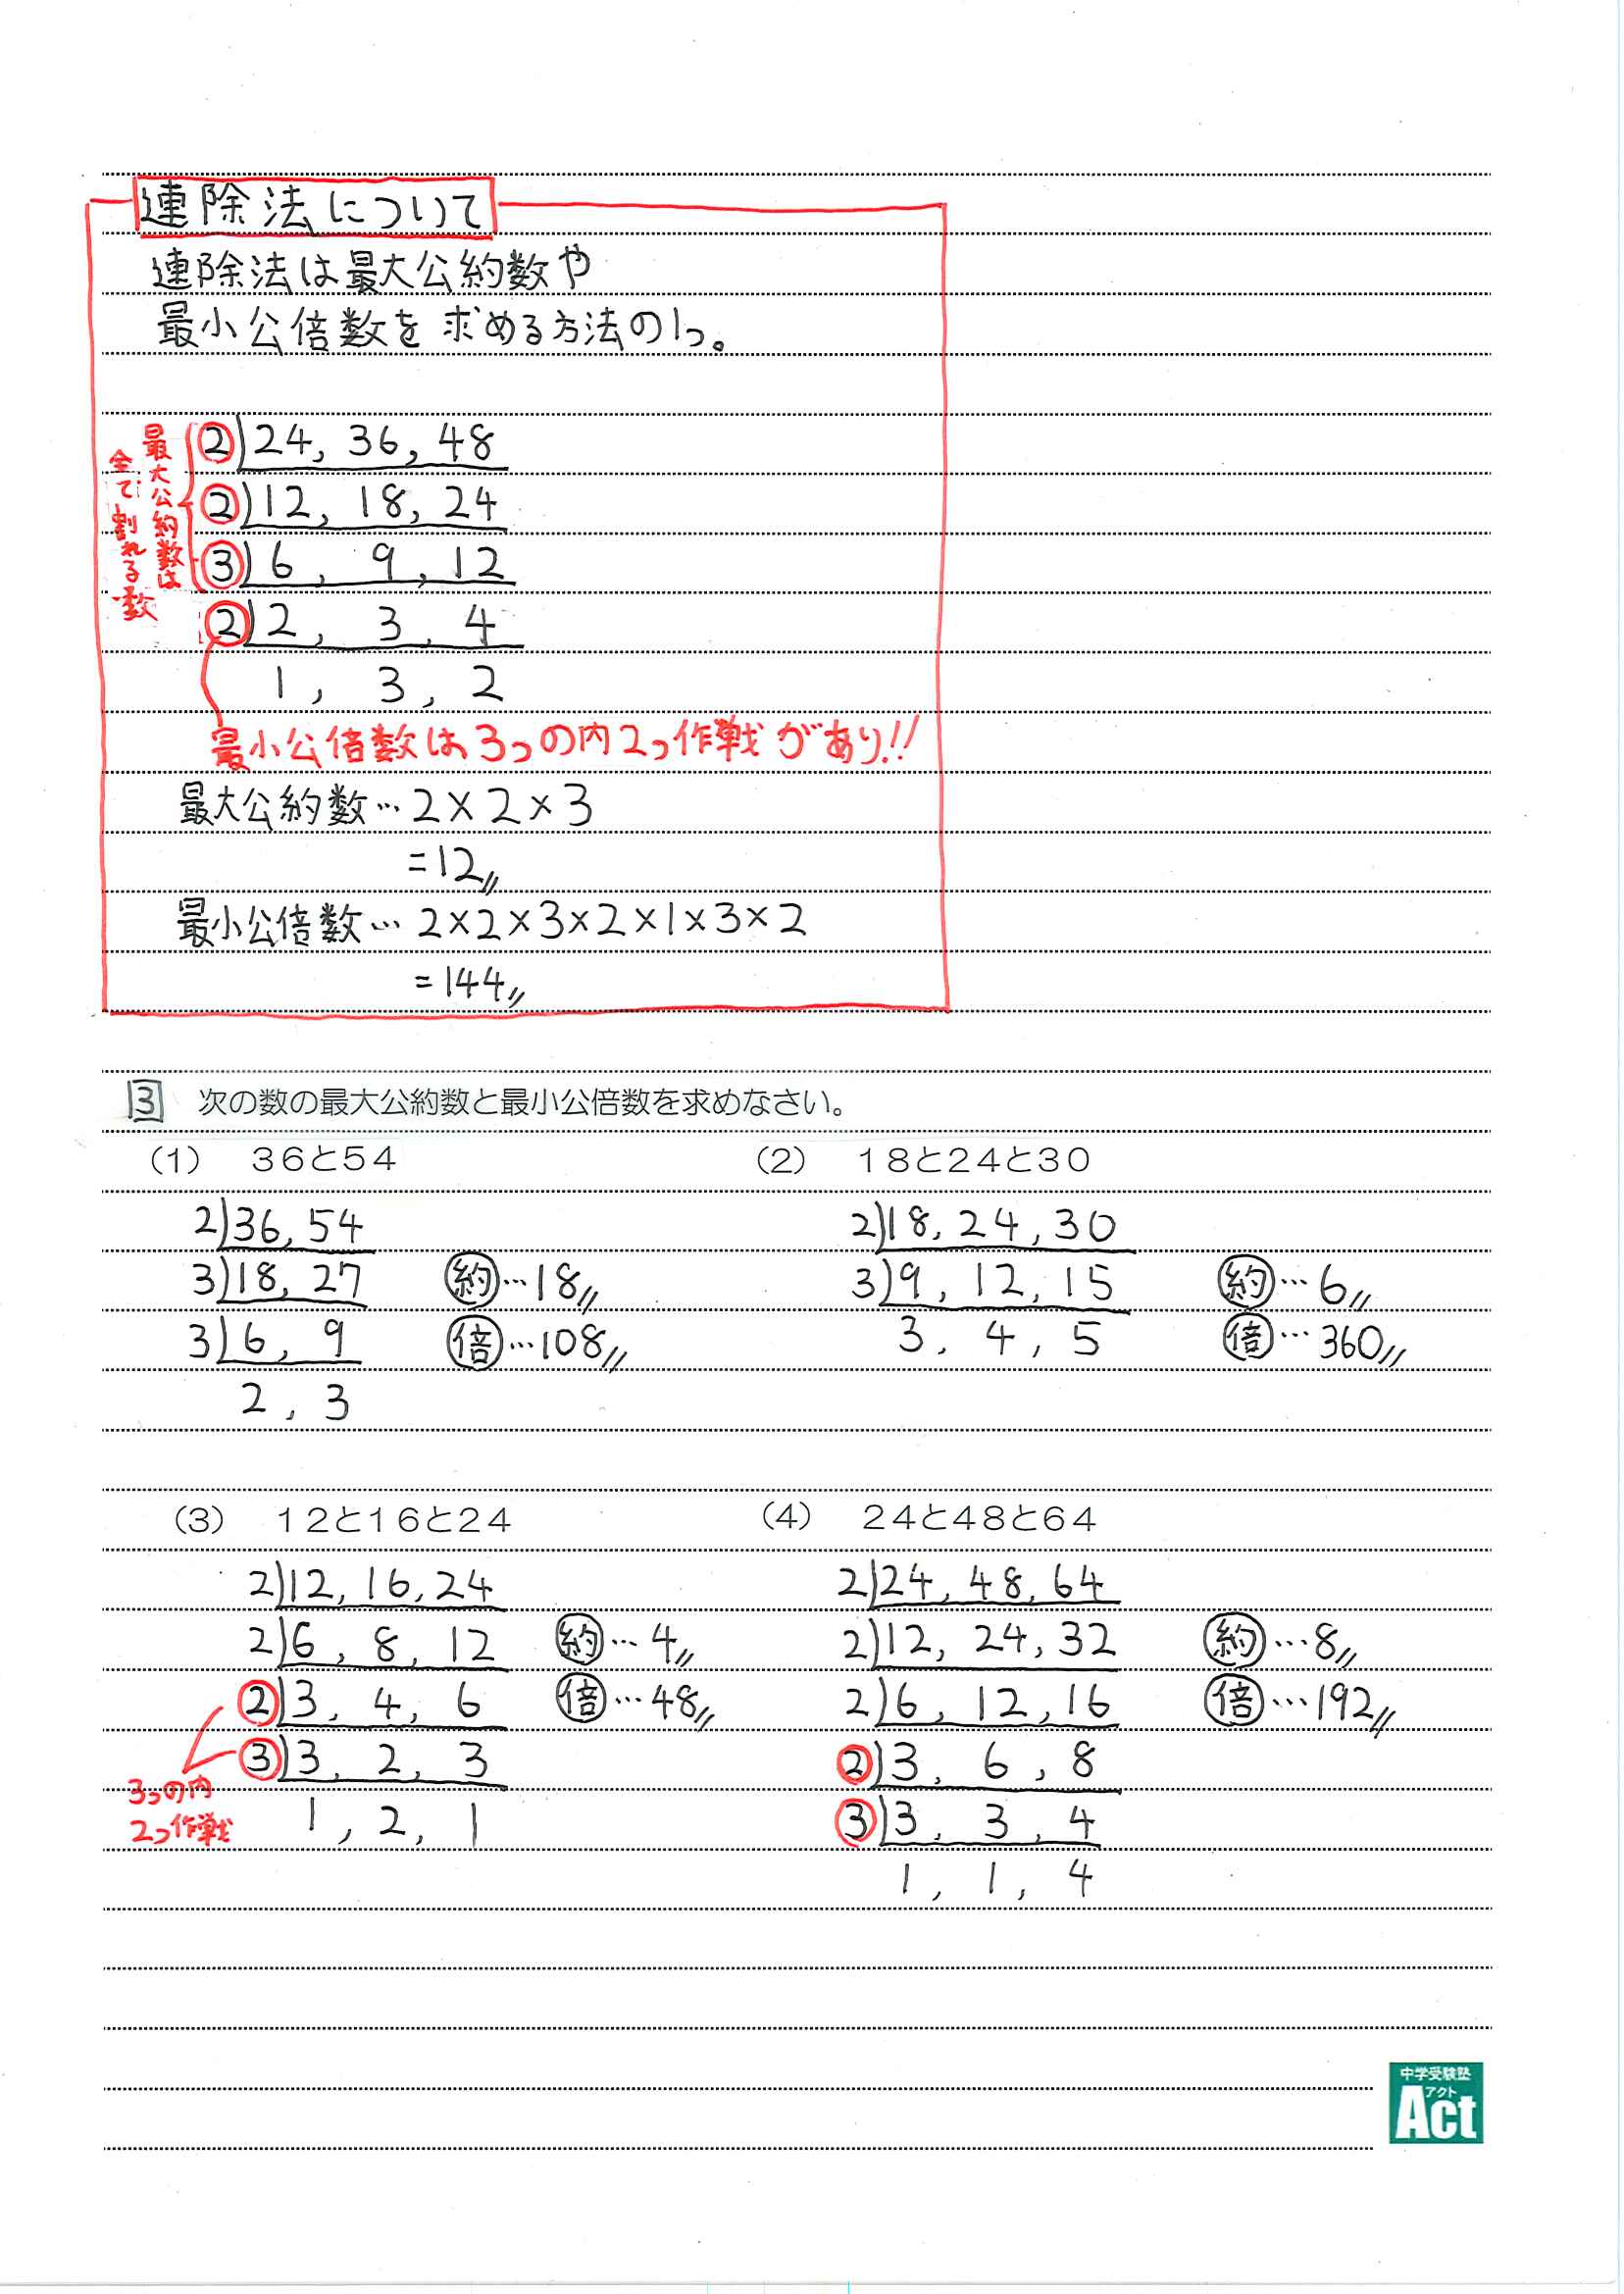 連除法について
連除法は最大公約数や
最小公倍数を求める方法の1つ。
最大公約数は
全て割れる数
2)24, 36, 48
2)12, 18, 24
3)6, 9, 12
2)2, 3, 4
1, 3, 2
最小公倍数は3つの内2つ作戦があり!!
最大公約数…2×2×3
=12〃
最小公倍数…2×2×3×2×1×3×2
=144〃
3 次の数の最大公約数と最小公倍数を求めなさい。
(1) 36と54
2)36, 54
3)18, 27
3)6, 9
2, 3
約…18〃
倍…108〃
(2) 18と24と30
2)18, 24, 30
3)9, 12, 15
3, 4, 5
約…6〃
倍…360〃
(3) 12と16と24
2)12, 16, 24
2)6, 8, 12
2)3, 4, 6
3)3, 2, 3
1, 2, 1
3つの内
2つ作戦
約…4〃
倍…48〃
(4) 24と48と64
2)24, 48, 64
2)12, 24, 32
2)6, 12, 16
2)3, 6, 8
3)3, 3, 4
1, 1, 4
約…8〃
倍…192〃
中学受験塾
アクト
Act